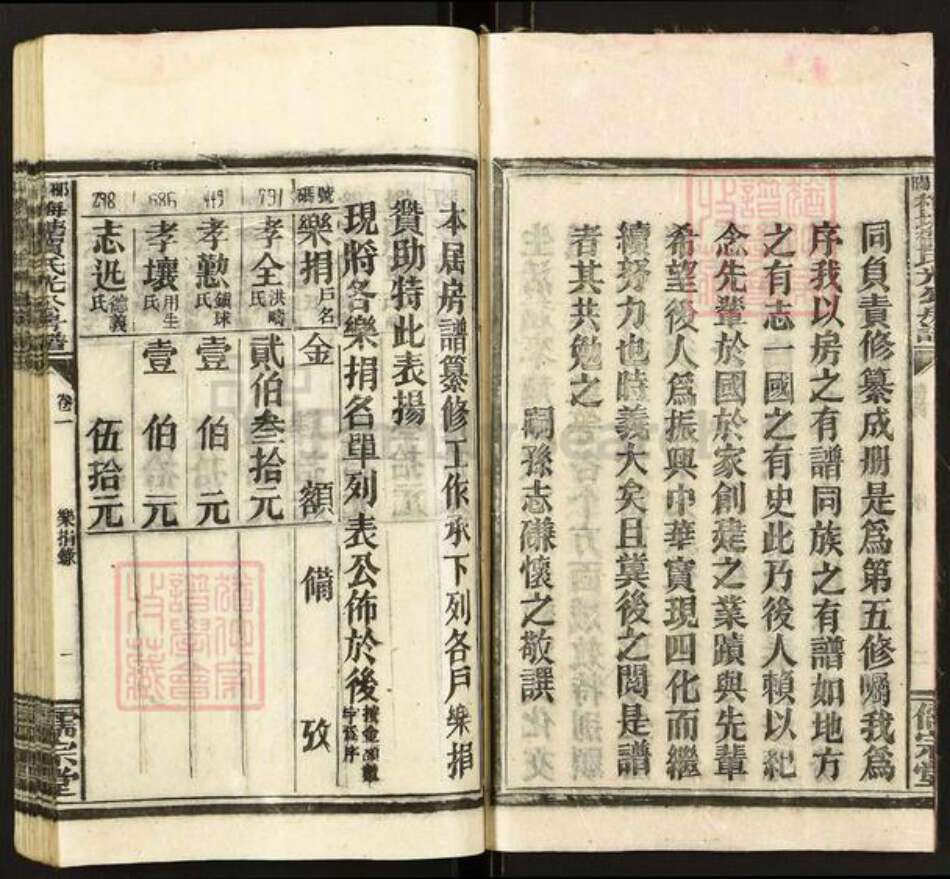 同負責修纂成册是爲第五修囑我爲
序我以房之有譜同族之有譜如地方
之有志一國之有史此乃後人賴以紀
念先輩於國於家創建之業蹟與先輩
希望後人爲振興中華實現四化而繼
續努力也時義大矣且冀後之閱是譜
者其共勉之
嗣孫志磏懷之敬譔
儒宗堂
本届房譜纂修工作承下列各戶樂捐
贊助特此表揚
現將各樂捐名單列表公佈於後 按金額數字爲序
號碼 樂捐戶名 金額 備攷
731 孝全 洪疇氏 貳伯叁拾元
449 孝懃 鎮球氏 壹伯元
686 孝壤 用生氏 壹伯元
298 志迡 德義氏 伍拾元
卷一
樂捐錄
一
儒宗堂